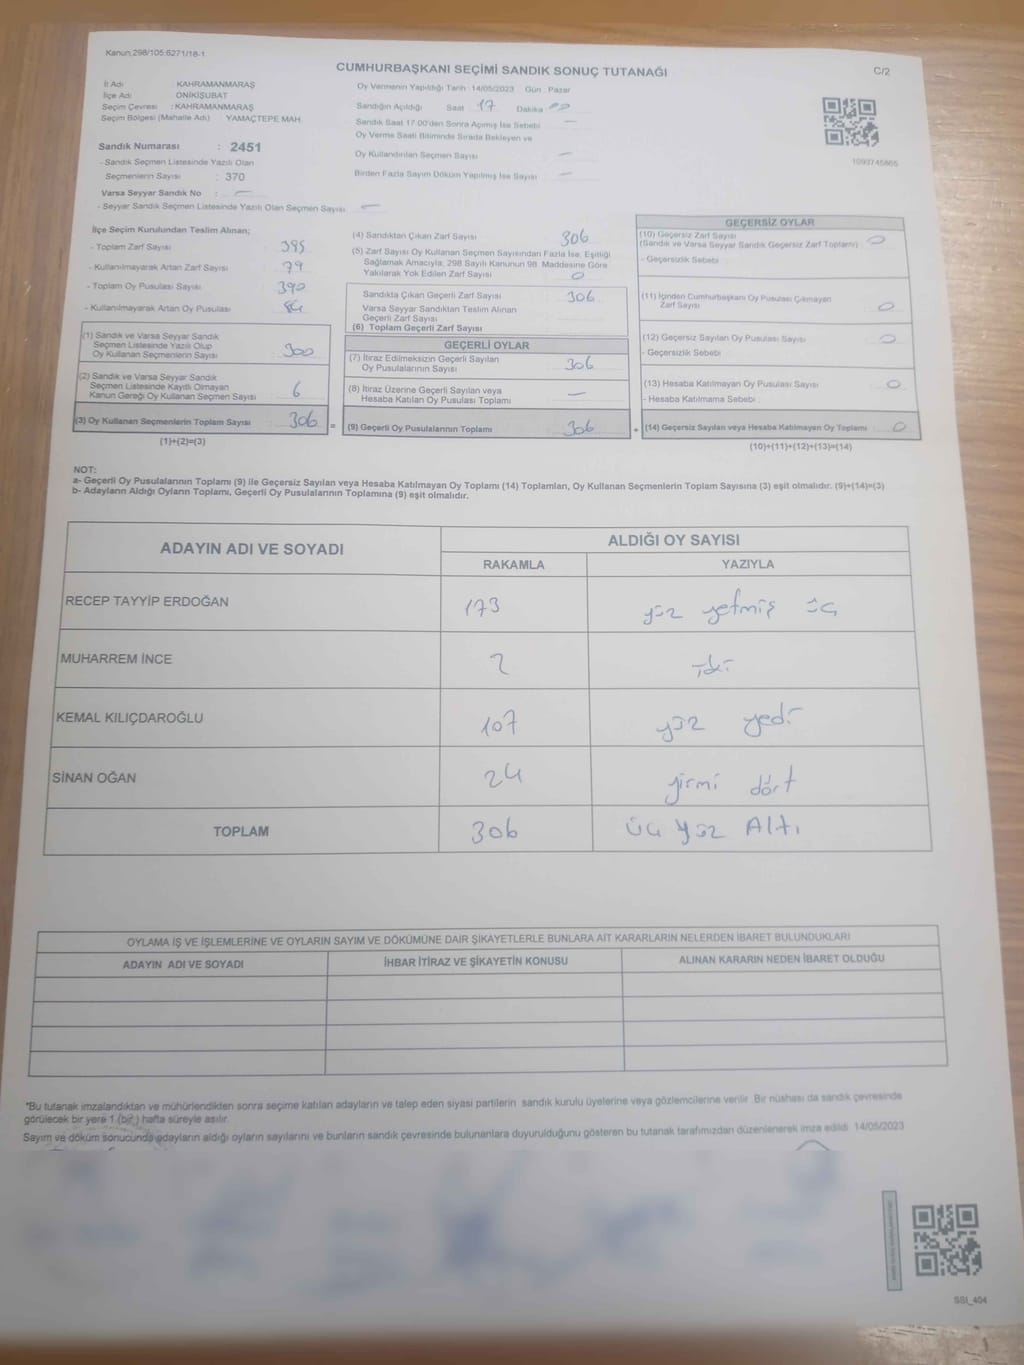 Kanun 298/105:6271/18-1
CUMHURBAŞKANI SEÇİMİ SANDIK SONUÇ TUTANAĞI
C/2
İl Adı : KAHRAMANMARAŞ
İlçe Adı : ONİKİŞUBAT
Seçim Çevresi : KAHRAMANMARAŞ
Seçim Bölgesi (Mahalle Adı) YAMAÇTEPE MAH.
Sandık Numarası : 2451
- Sandık Seçmen Listesinde Yazılı Olan
Seçmenlerin Sayısı : 370
Varsa Seyyar Sandık No : —
- Seyyar Sandık Seçmen Listesinde Yazılı Olan Seçmen Sayısı —
Oy Vermenin Yapıldığı Tarih :14/05/2023 Gün : Pazar
Sandığın Açıldığı Saat 17 Dakika 00
Sandık Saat 17:00'den Sonra Açımış İse Sebebi —
Oy Verme Saati Bitiminde Sırada Bekleyen ve
Oy Kullandırılan Seçmen Sayısı —
Birden Fazla Sayım Döküm Yapılmış İse Sayısı —
1093745866
İlçe Seçim Kurulundan Teslim Alınan;
- Toplam Zarf Sayısı 385
- Kullanılmayarak Artan Zarf Sayısı 79
- Toplam Oy Pusulası Sayısı 390
- Kullanılmayarak Artan Oy Pusulası 84
(1) Sandık ve Varsa Seyyar Sandık
Seçmen Listesinde Yazılı Olup
Oy Kullanan Seçmenlerin Sayısı 300
(2) Sandık ve Varsa Seyyar Sandık
Seçmen Listesinde Kayıtlı Olmayan
Kanun Gereği Oy Kullanan Seçmen Sayısı 6
(3) Oy Kullanan Seçmenlerin Toplam Sayısı 306 =
(1)+(2)=(3)
(4) Sandıktan Çıkan Zarf Sayısı 306
(5) Zarf Sayısı Oy Kullanan Seçmen Sayısından Fazla İse, Eşitliği
Sağlamak Amacıyla; 298 Sayılı Kanunun 98. Maddesine Göre
Yakılarak Yok Edilen Zarf Sayısı 0
Sandıkta Çıkan Geçerli Zarf Sayısı 306
Varsa Seyyar Sandıktan Teslim Alınan
Geçerli Zarf Sayısı
(6) Toplam Geçerli Zarf Sayısı
GEÇERLİ OYLAR
(7) İtiraz Edilmeksizin Geçerli Sayılan
Oy Pusulalarının Sayısı 306
(8) İtiraz Üzerine Geçerli Sayılan veya
Hesaba Katılan Oy Pusulası Toplamı —
(9) Geçerli Oy Pusulalarının Toplamı 306 +
GEÇERSİZ OYLAR
(10) Geçersiz Zarf Sayısı 0
(Sandık ve Varsa Seyyar Sandık Geçersiz Zarf Toplamı)
- Geçersizlik Sebebi
(11) İçinden Cumhurbaşkanı Oy Pusulası Çıkmayan
Zarf Sayısı 0
(12) Geçersiz Sayılan Oy Pusulası Sayısı 0
- Geçersizlik Sebebi
(13) Hesaba Katılmayan Oy Pusulası Sayısı 0
- Hesaba Katılmama Sebebi
(14) Geçersiz Sayılan veya Hesaba Katılmayan Oy Toplamı 0
(10)+(11)+(12)+(13)=(14)
NOT:
a- Geçerli Oy Pusulalarının Toplamı (9) ile Geçersiz Sayılan veya Hesaba Katılmayan Oy Toplamı (14) Toplamları, Oy Kullanan Seçmenlerin Toplam Sayısına (3) eşit olmalıdır. (9)+(14)=(3)
b- Adayların Aldığı Oyların Toplamı, Geçerli Oy Pusulalarının Toplamına (9) eşit olmalıdır.
ADAYIN ADI VE SOYADI
ALDIĞI OY SAYISI
RAKAMLA
YAZIYLA
RECEP TAYYİP ERDOĞAN 173 yüz yetmiş üç
MUHARREM İNCE 2 iki
KEMAL KILIÇDAROĞLU 107 yüz yedi
SİNAN OĞAN 24 yirmi dört
TOPLAM 306 üç yüz Altı
OYLAMA İŞ VE İŞLEMLERİNE VE OYLARIN SAYIM VE DÖKÜMÜNE DAİR ŞİKAYETLERLE BUNLARA AİT KARARLARIN NELERDEN İBARET BULUNDUKLARI
ADAYIN ADI VE SOYADI
İHBAR İTİRAZ VE ŞİKAYETİN KONUSU
ALINAN KARARIN NEDEN İBARET OLDUĞU
*Bu tutanak imzalandıktan ve mühürlendikten sonra seçime katılan adayların ve talep eden siyasi partilerin sandık kurulu üyelerine veya gözlemcilerine verilir. Bir nüshası da sandık çevresinde
görülecek bir yere 1 (bir) hafta süreyle asılır.
Sayım ve döküm sonucunda adayların aldığı oyların sayılarını ve bunların sandık çevresinde bulunanlara duyurulduğunu gösteren bu tutanak tarafımızdan düzenlenerek imza edildi. 14/05/2023
SSI_404